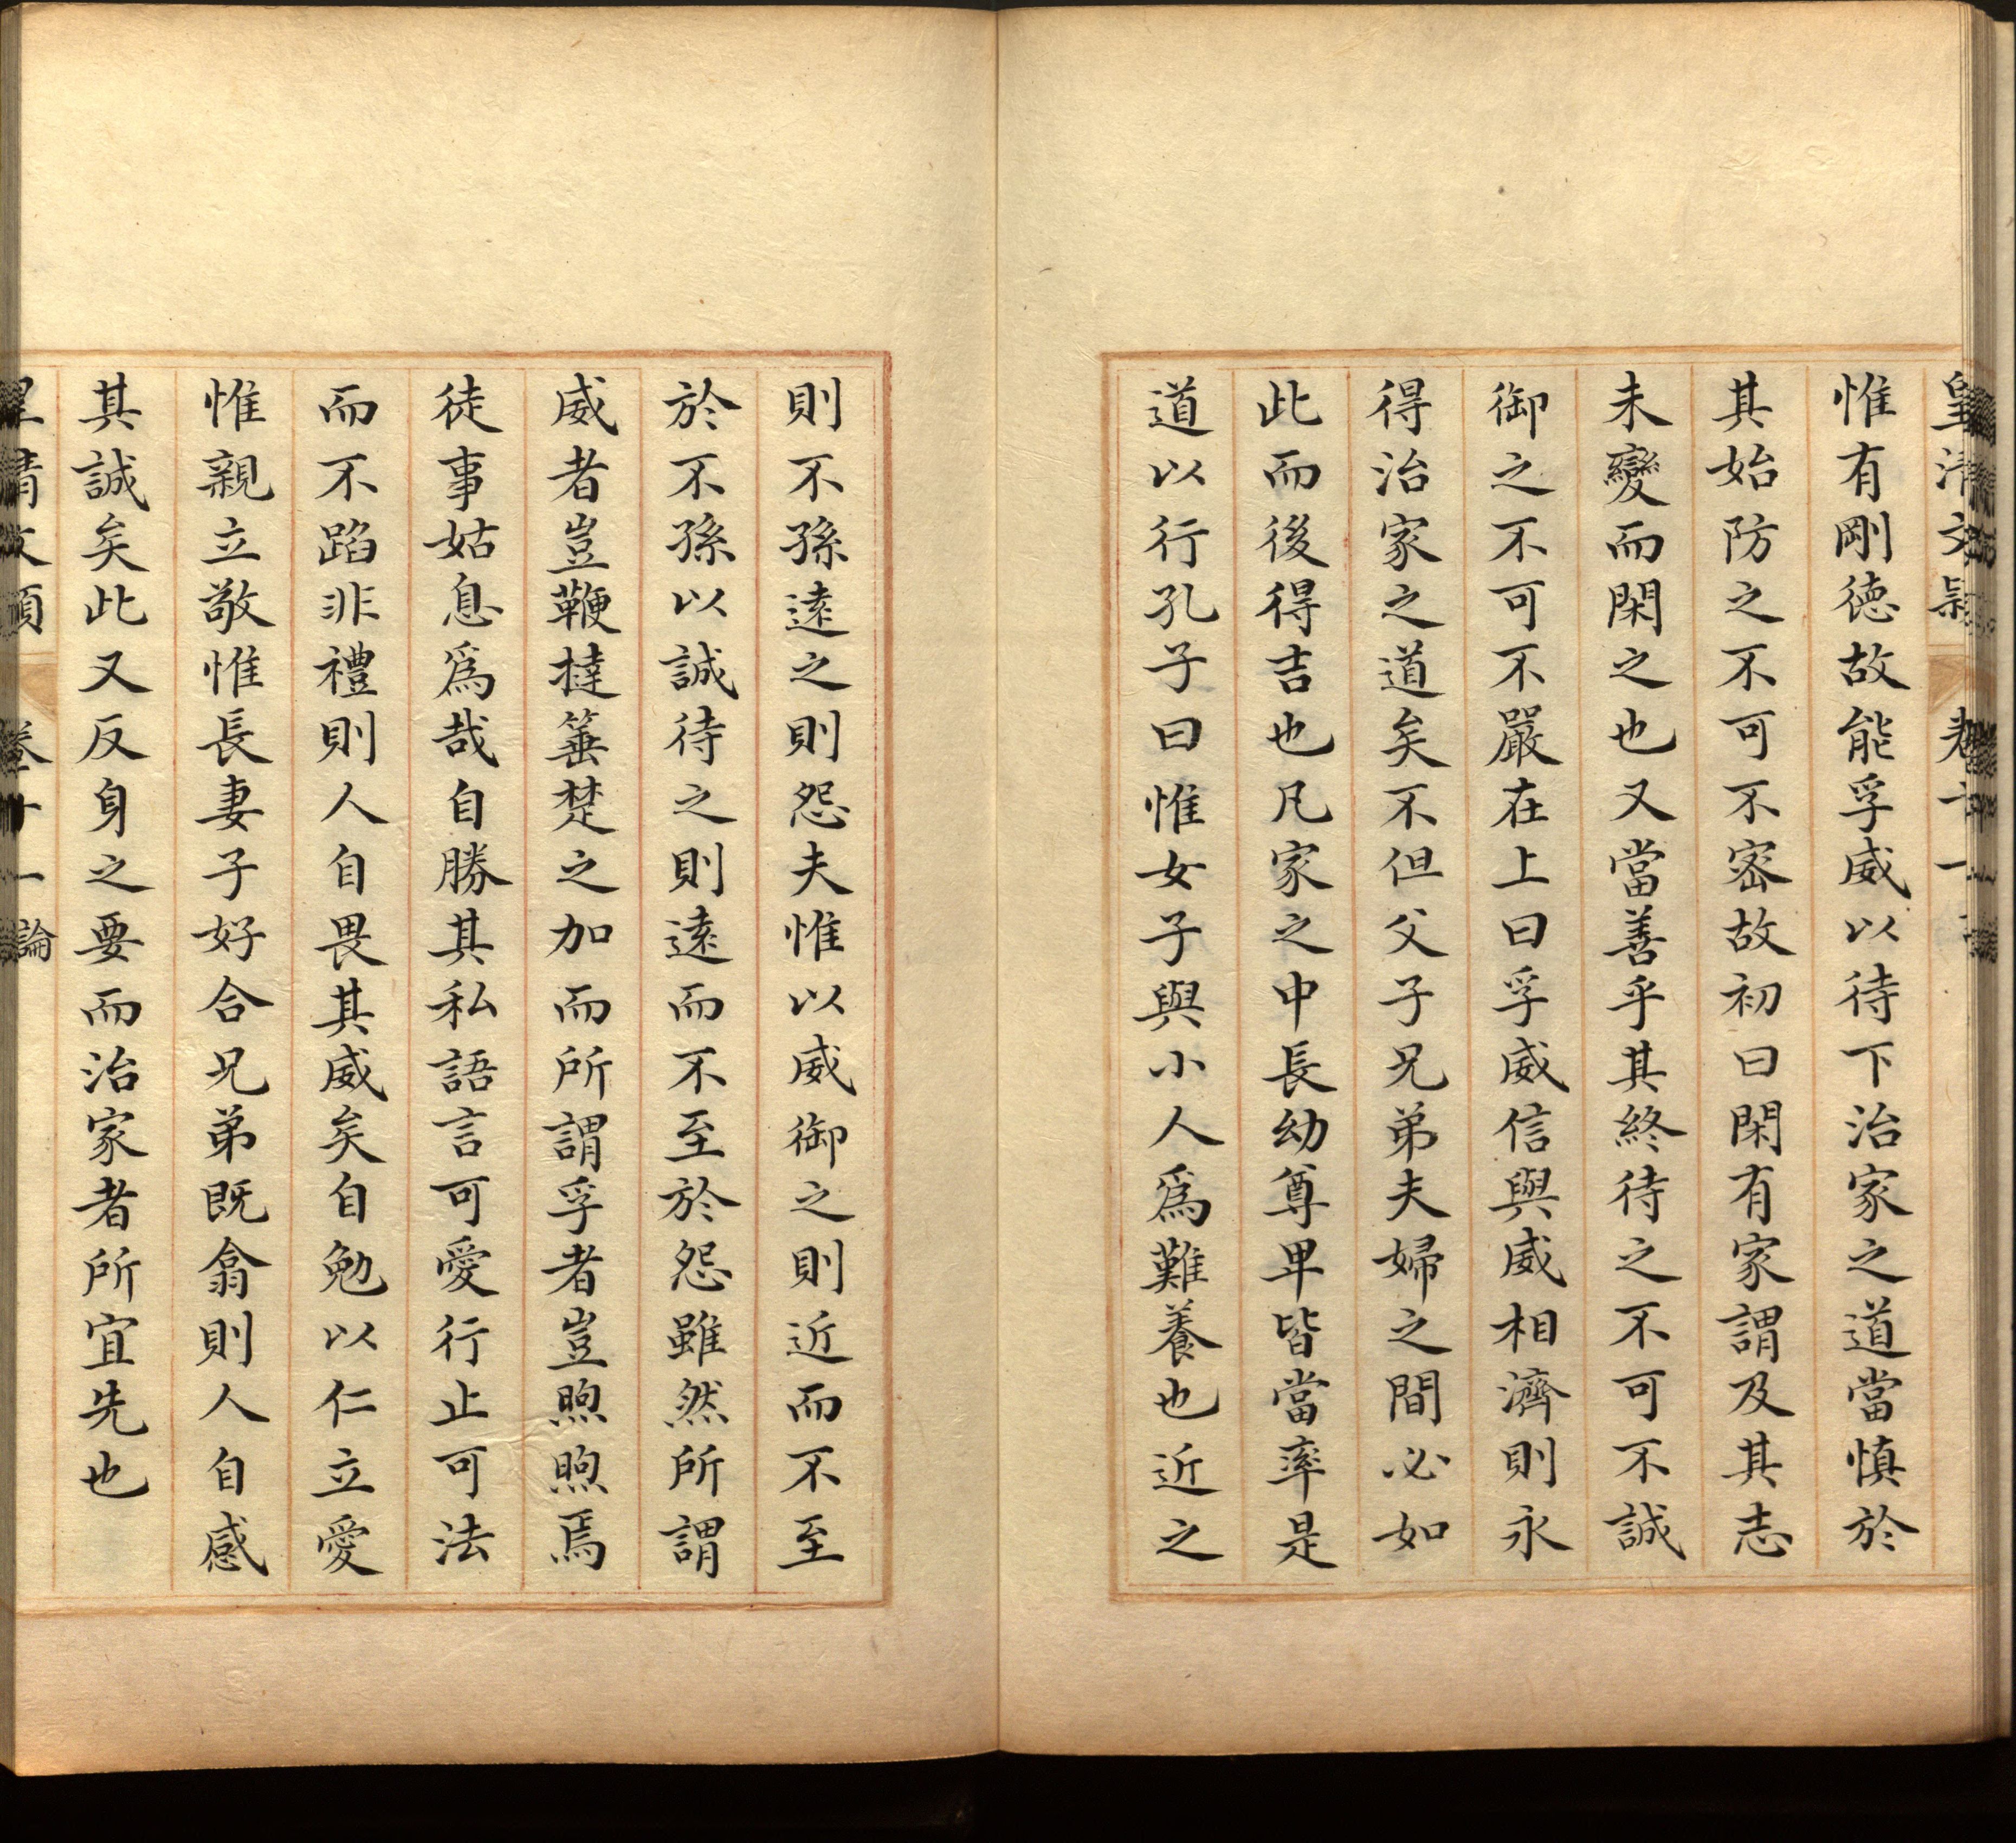 皇清文穎 卷十一
惟有剛徳故能孚威以待下治家之道當慎於
其始防之不可不宻故初曰閑有家謂及其志
未變而閑之也又當善乎其終待之不可不誠
御之不可不嚴在上曰孚威信與威相濟則永
得治家之道矣不但父子兄弟夫婦之間必如
此而後得吉也凡家之中長幼尊卑皆當率是
道以行孔子曰惟女子與小人為難養也近之
則不孫逺之則怨夫惟以威御之則近而不至
於不孫以誠待之則逺而不至於怨雖然所謂
威者豈鞭撻箠楚之加而所謂孚者豈煦煦焉
徒事姑息爲哉自勝其私語言可愛行止可法
而不蹈非禮則人自畏其威矣自勉以仁立愛
惟親立敬惟長妻子好合兄弟既翕則人自感
其誠矣此又反身之要而治家者所宜先也
皇清文穎 卷十一 論